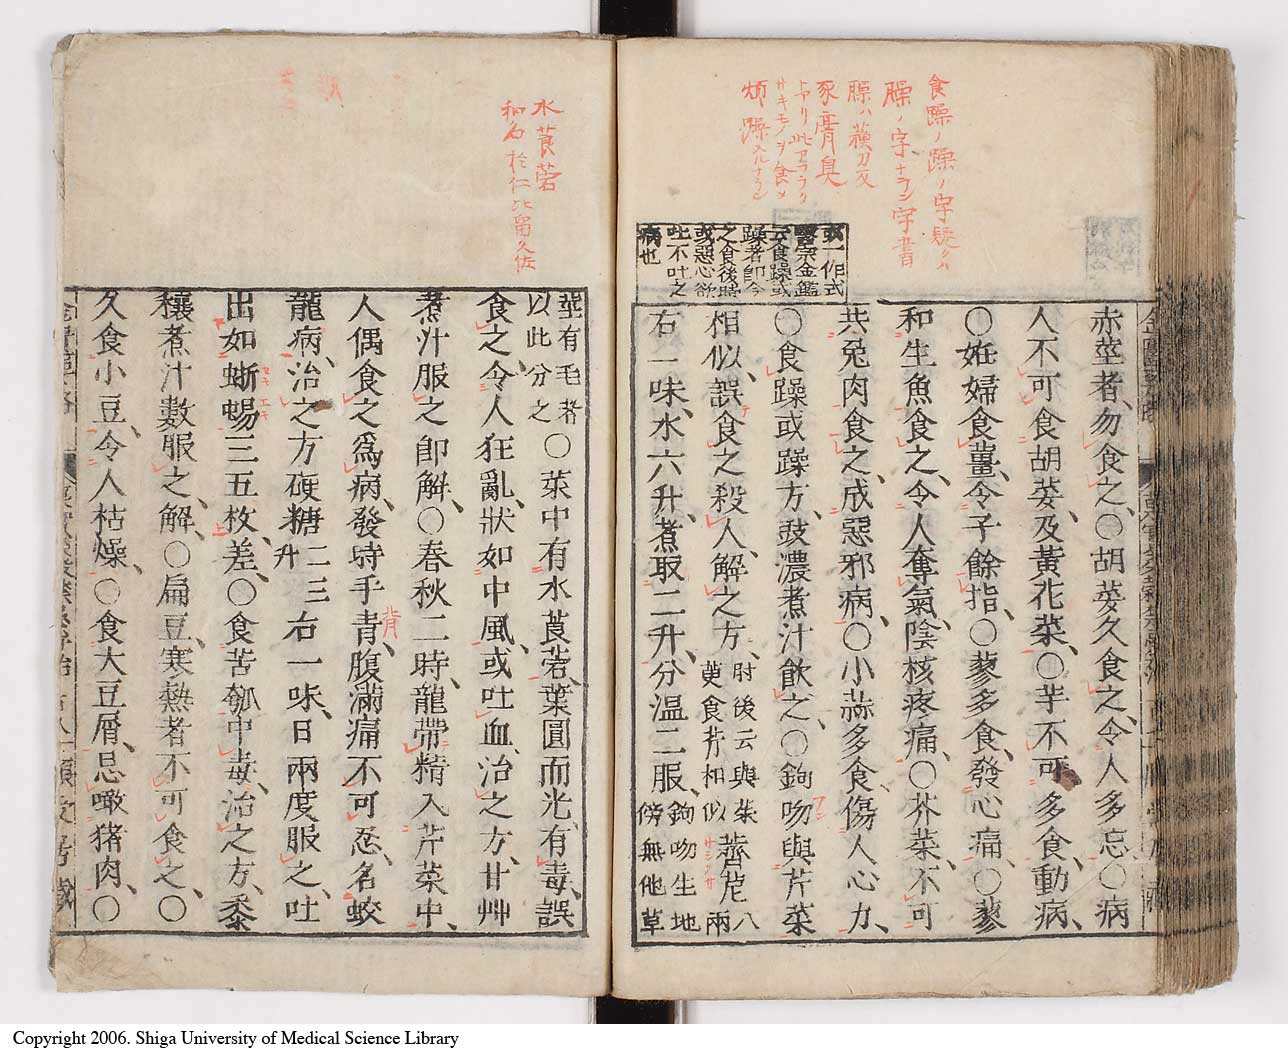 食躁ノ躁ノ字疑クハ
臊ノ字ナラン字書
臊ハ蘓刀攵
豕膏臭
トアリ此アララク
サキモノヲ食メ
煩躁スルナラン
或一作式
醫宗金鑑
云食躁或
躁者即今
之食後時
或惡心欲
吐不吐之
病也
赤莖者、勿食之、〇胡荽久食之、令人多忘、〇病
人不可食胡荽、及黃花菜、〇芋不可多食、動病、
〇妊婦食薑、令子餘指、〇蓼多食、發心痛、〇蓼
和生魚食之、令人奪氣、陰核疼痛、〇芥菜、不可
共兔肉食之、成惡邪病、〇小蒜多食、傷人心力、
〇食躁或躁方、豉濃煮汁飮之、〇鉤吻與芹菜
相似、誤食之殺人、解之方、肘後云與茱萸食芹相似 薺苨八兩
右一味、水六升、煮取二升、分溫二服、鉤吻生地傍無他草
水莨菪
和名於仁比留久佐
莖有毛者以此分之〇菜中有水莨菪、葉圓而光、有毒、誤
食之、令人狂亂、狀如中風、或吐血、治之方、甘艸
煮汁服之卽解、〇春秋二時、龍帶精入芹菜中、
人偶食之爲病、發時手青、腹滿痛不可忍、名蛟
背
龍病、治之方、硬糖二三升右一味、日兩度服之、吐
出如蜥蜴三五枚、差、〇食苦瓠中毒、治之方、黍
穰煮汁數服之、解、〇扁豆、寒熱者不可食之、〇
久食小豆、令人枯燥、〇食大豆屑、忌噉猪肉、〇
Copyright 2006. Shiga University of Medical Science Library